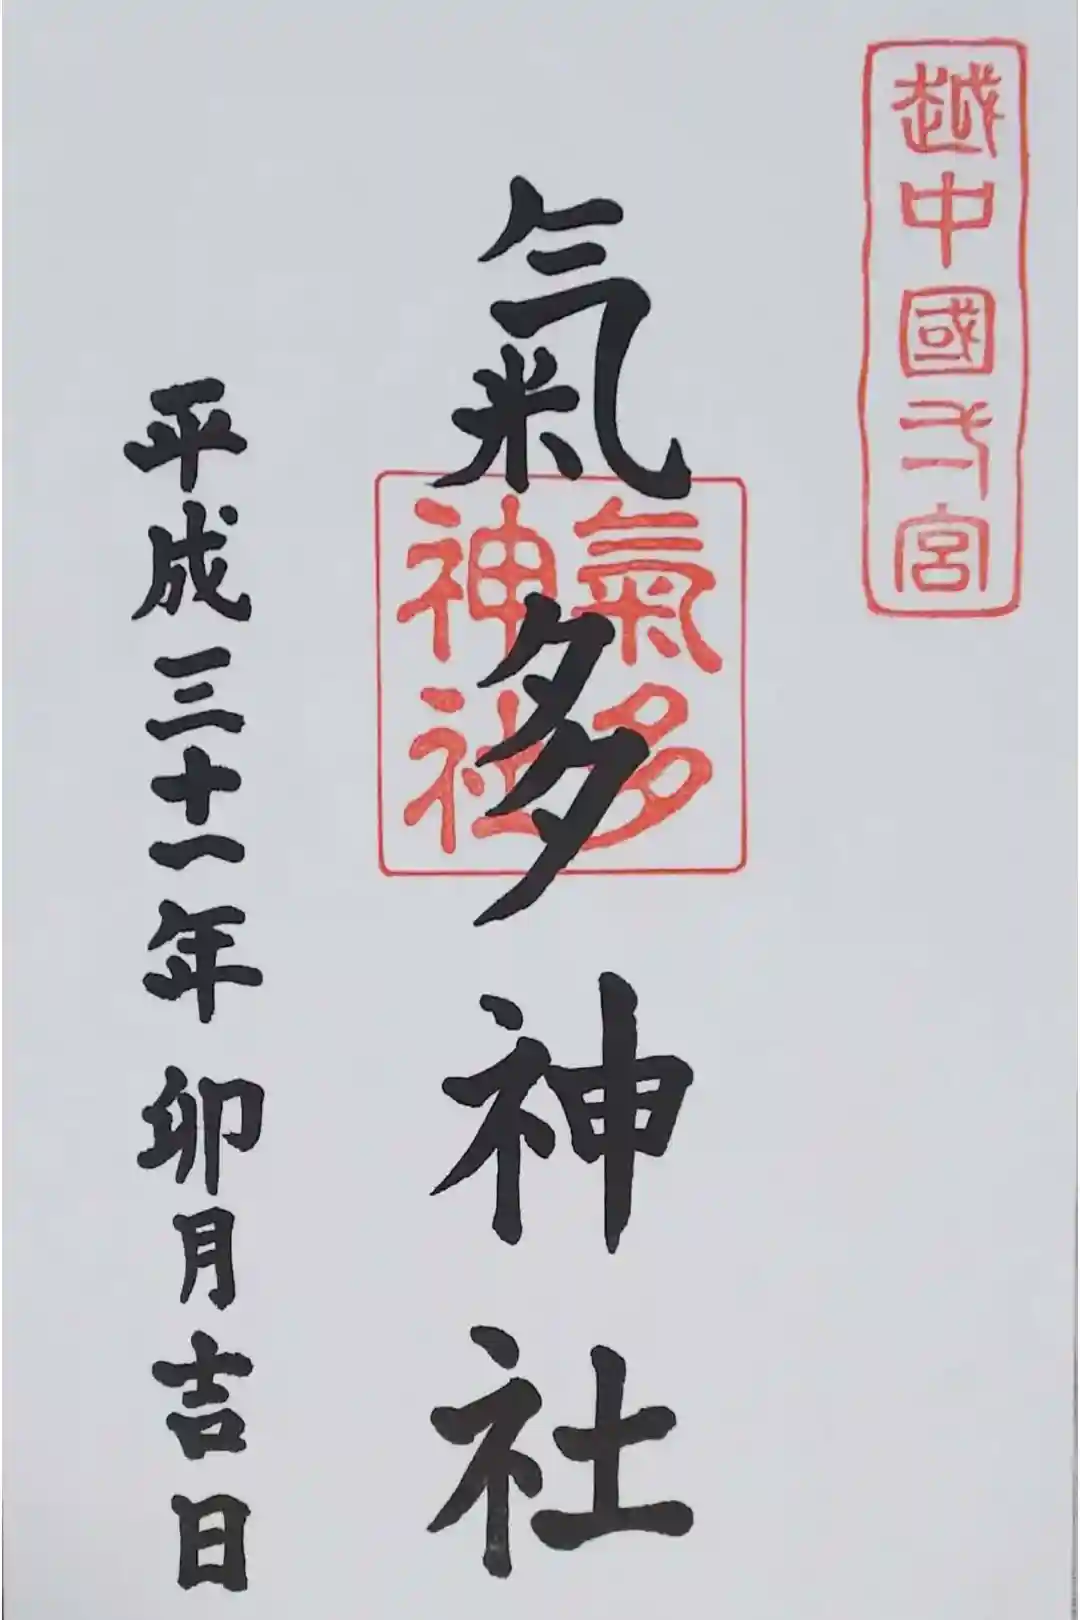 越中國一宮
氣多神社
氣多
神社
平成三十一年卯月吉日